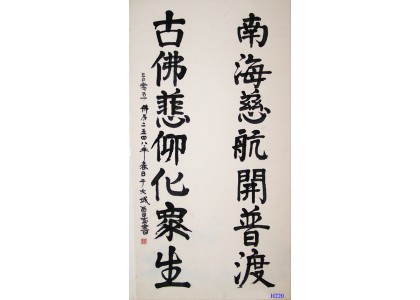 南海慈航開普渡
古佛悲仰化眾生
佛曆二五四八年春日于大城
H220